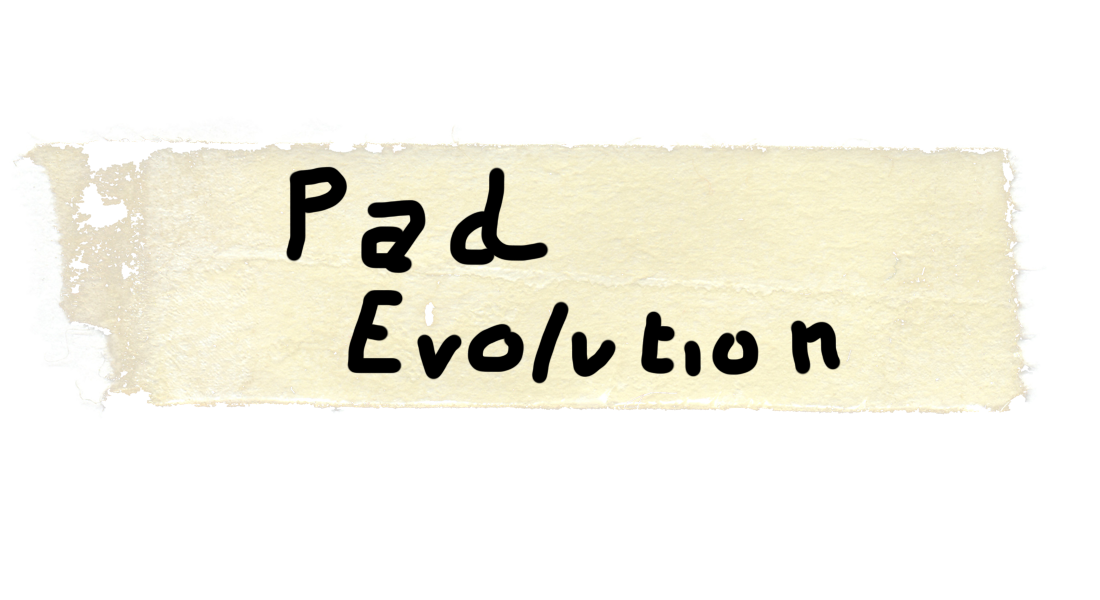 Pad
Evolution